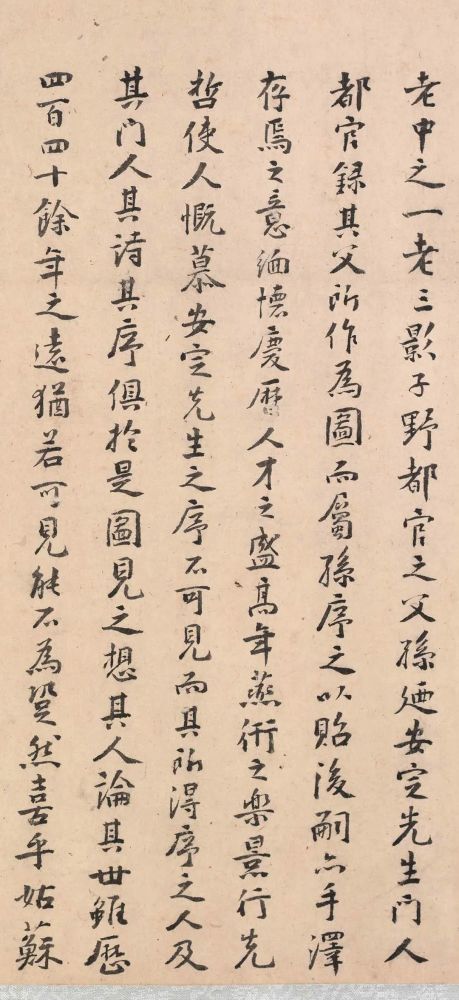 老中之一老三影子野都官之父孫廼安定先生門人
都官録其父所作為圖而屬孫序之以貽後嗣亦手澤
存焉之意緬懷慶曆人才之盛髙年燕衎之樂景行先
哲使人慨慕安定先生之序不可見而其所得序之人及
其門人其詩其序俱於是圖見之想其人論其世雖歴
四百四十餘年之遠猶若可見能不為㞃然喜乎姑蘇